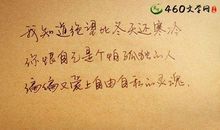 460文学网
我知道绝望比冬天还寒冷
你恨自己是个怕孤独的人
偏偏又爱上自由自私的灵魂。